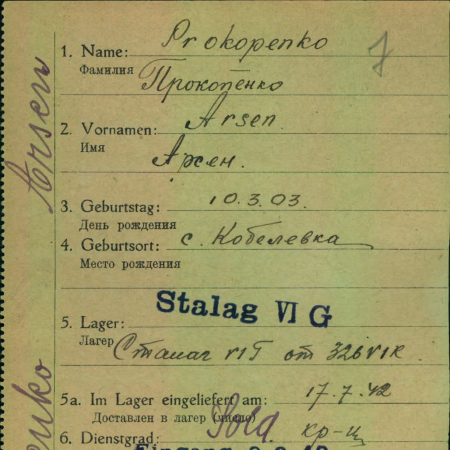 Prokopenko
1. Name:
Фамилия Прокопенко
2. Vornamen: Arsen.
Имя Арсен.
3. Geburtstag: 10.3.03.
День рождения
4. Geburtsort: с. Кобелевка
Место рождения
Stalag VI G
5. Lager:
Лагер Сталаг VIГ от 326VIК
5a. Im Lager eingeliefert am: 17.7.42
Доставлен в лагер (число)
6. Dienstgrad: Sold кр-ц
Arsen
enko